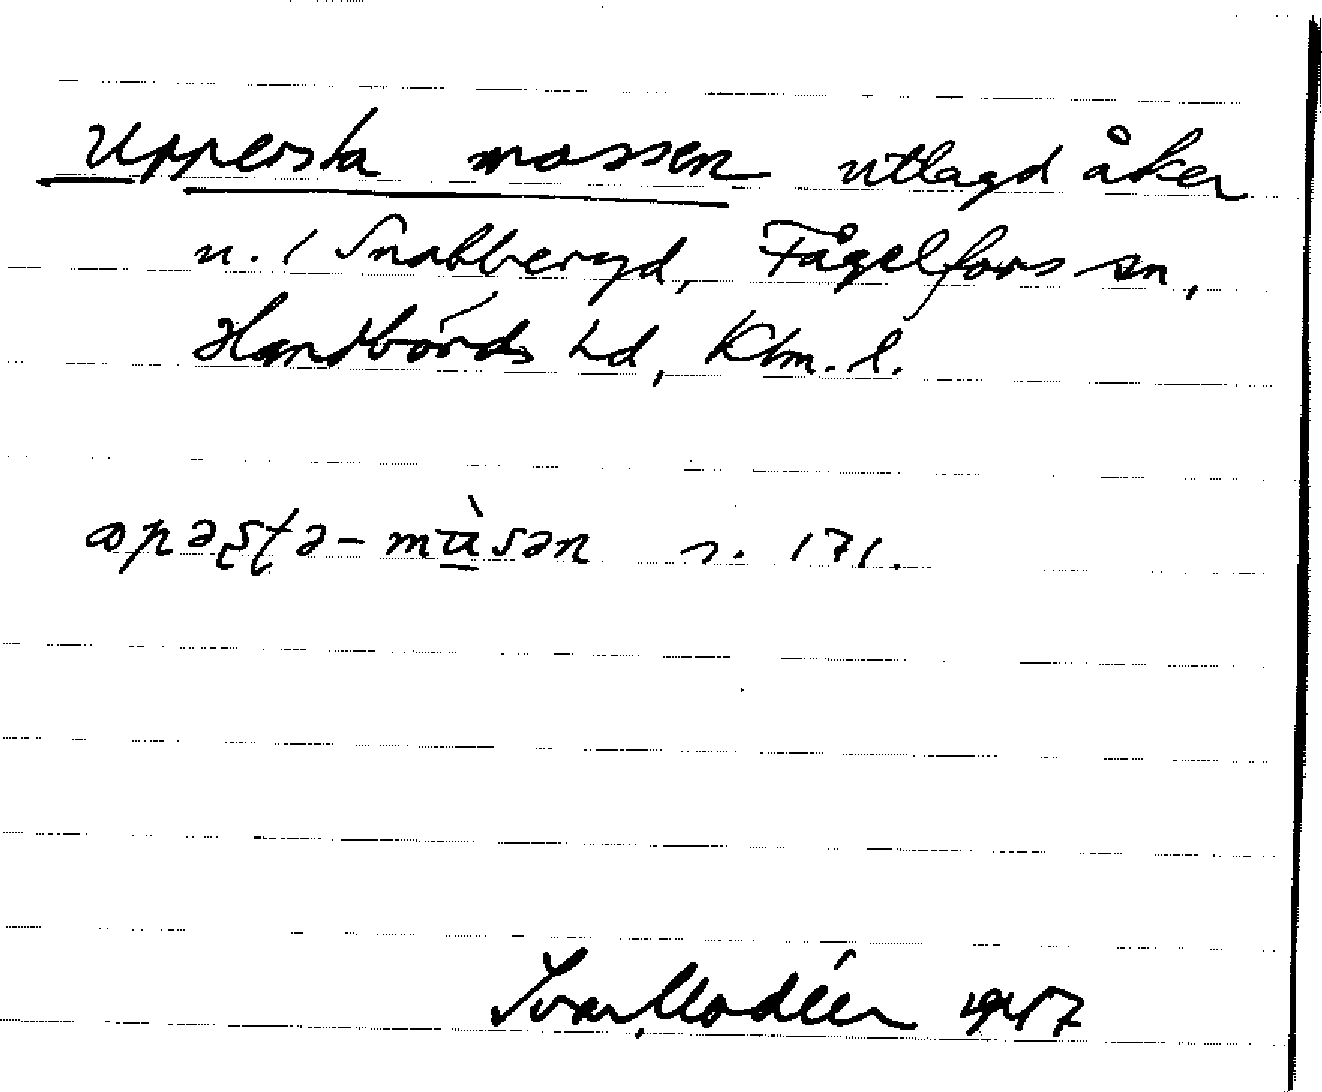 Uppersta mossen utlagd åker
n. i Snabberyd, Fågelfors sn,
Handbörds hd, Klm. l.
opəʂʈa-mùsən s. 171.
Ivar Modéer 1947